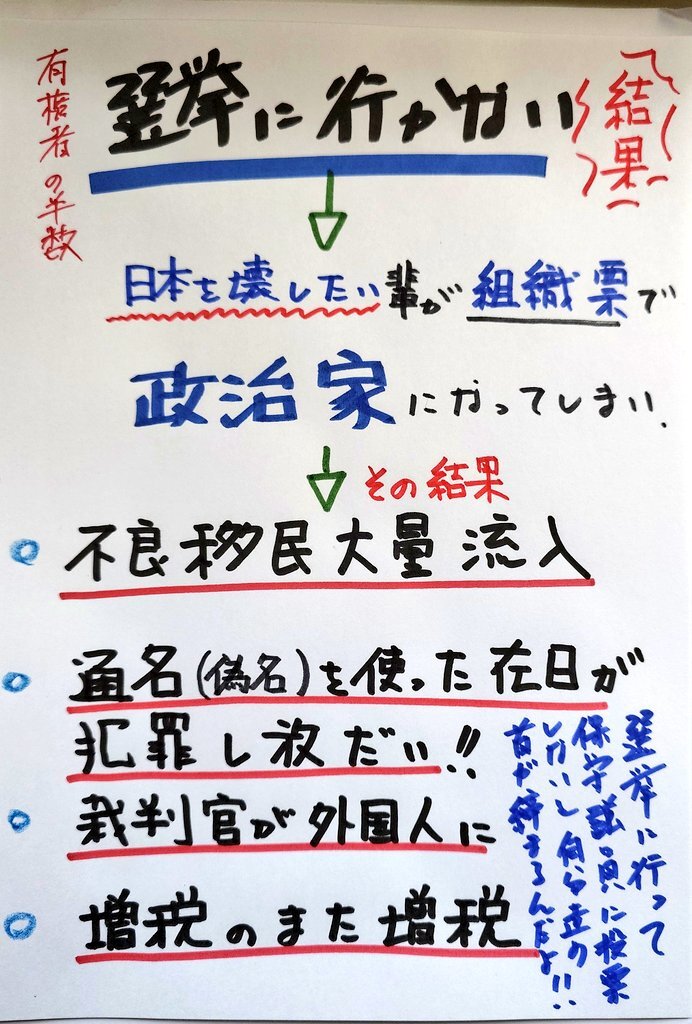 有権者の半数
選挙に行かない
結果
日本を壊したい輩が組織票で
政治家になってしまい、
その結果
不良移民大量流入
通名(偽名)を使った在日が
犯罪し放だい!!
裁判官が外国人に
増税のまた増税
選挙に行って
保守議員に投票
しないと自分達の
首が締まるんだよ!!